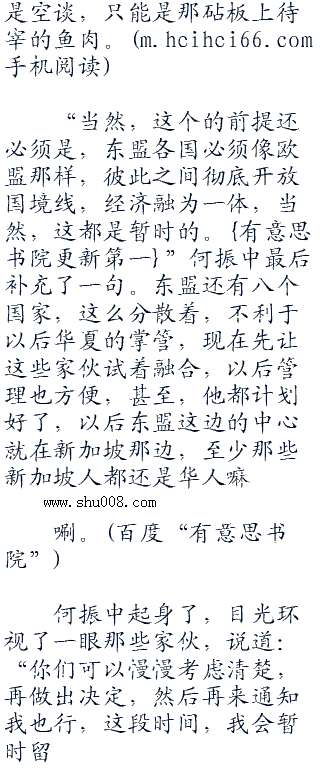 是空谈，只能是那砧板上待
宰的鱼肉。(m.hcihci66.com
手机阅读)
“当然，这个的前提还
必须是，东盟各国必须像欧
盟那样，彼此之间彻底开放
国境线，经济融为一体，当
然，这都是暂时的。{有意思
书院更新第一}”何振中最后
补充了一句。东盟还有八个
国家，这么分散着，不利于
以后华夏的掌管，现在先让
这些家伙试着融合，以后管
理也方便，甚至，他都计划
好了，以后东盟这边的中心
就在新加坡那边，至少那些
新加坡人都还是华人嘛
www.shu008.com
唰。(百度“有意思书
院”)
何振中起身了，目光环
视了一眼那些家伙，说道：
“你们可以慢慢考虑清楚，
再做出决定，然后再来通知
我也行，这段时间，我会暂
时留